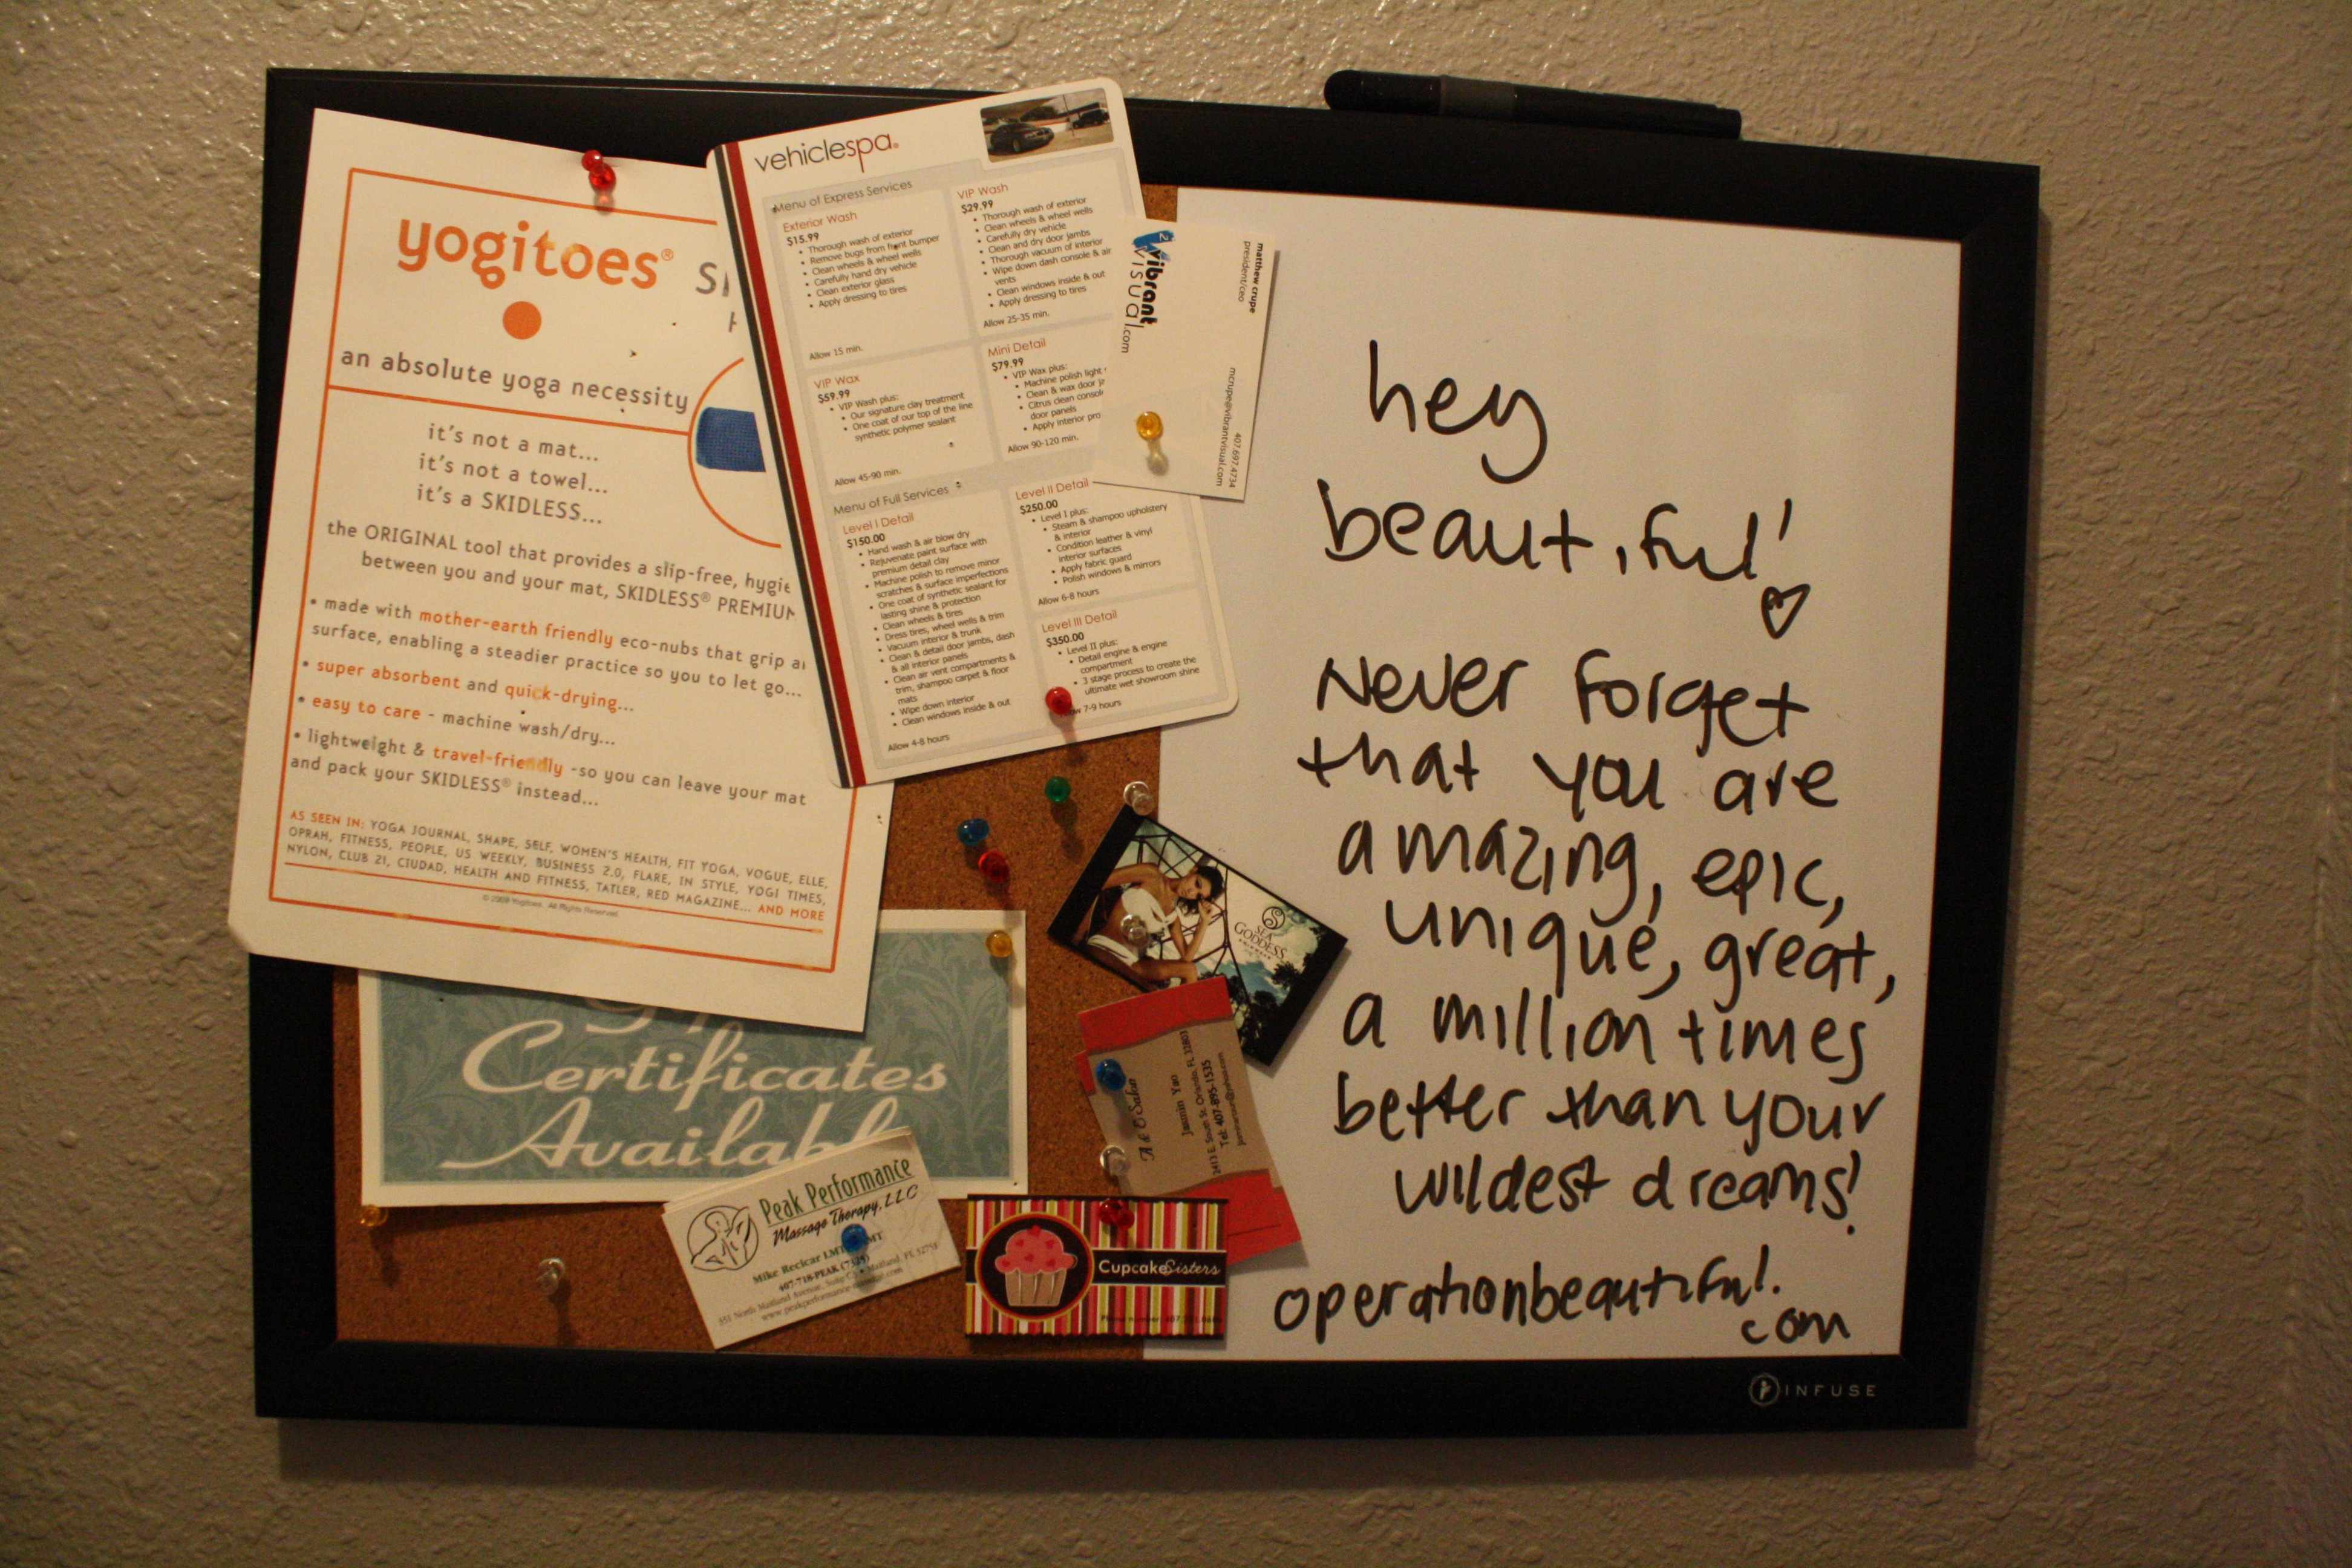 yogitoes®
an absolute yoga necessity
it's not a mat...
it's not a towel...
it's a SKIDLESS...
the ORIGINAL tool that provides a slip-free,
between you and your mat, SKIDLESS®
• made with mother-earth friendly eco-nubs that grip
surface, enabling a steadier practice so you to let go...
• super absorbent and quick-drying...
• easy to care - machine wash/dry...
• lightweight & travel-friendly -so you can leave your mat
and pack your SKIDLESS® instead...
AS SEEN IN: YOGA JOURNAL, SHAPE, SELF, WOMEN'S HEALTH, FIT YOGA, VOGUE, ELLE,
OPRAH, FITNESS, PEOPLE, US WEEKLY, BUSINESS 2.0, FLARE, IN STYLE, YOGI TIMES,
NYLON, CLUB 21, CIUDAD, HEALTH AND FITNESS, TATLER, RED MAGAZINE... AND MORE
© 2009 Yogitoes. All Rights Reserved.
vehiclespa
Menu of Express Services
Exterior Wash
$15.99
• Thorough wash of exterior
• Remove bugs from front bumper
• Clean wheels & wheel wells
• Carefully hand dry vehicle
• Clean exterior glass
• Apply dressing to tires
Allow 15 min.
VIP Wash
$29.99
• Thorough wash of exterior
• Clean wheels & wheel wells
• Carefully dry vehicle
• Clean and dry door jambs
• Thorough vacuum of interior
• Wipe down dash console & air
vents
• Clean windows inside & out
• Apply dressing to tires
Allow 25-35 min.
VIP Wax
$59.99
• VIP Wash plus:
• Our signature clay treatment
• One coat of our top of the line
synthetic polymer sealant
Allow 45-90 min.
Mini Detail
$79.99
• VIP Wax plus:
• Machine polish light
• Clean & wax door
• Citrus clean
door panels
• Apply interior
Allow 90-120 min.
Menu of Full Services
Level I Detail
$150.00
• Hand wash & air blow dry
• Rejuvenate paint surface with
premium detail clay
• Machine polish to remove minor
scratches & surface imperfections
• One coat of synthetic sealant for
lasting shine & protection
• Clean wheels & tires
• Dress tires, wheel wells & trim
• Vacuum interior & trunk
• Clean & detail door jambs, dash
& all interior panels
• Clean air vent compartments &
trim, shampoo carpet & floor
mats
• Wipe down interior
• Clean windows inside & out
Allow 4-8 hours
Level II Detail
$250.00
• Level I plus:
• Steam & shampoo upholstery
& interior
• Condition leather & vinyl
interior surfaces
• Apply fabric guard
• Polish windows & mirrors
Allow 6-8 hours
Level III Detail
$350.00
• Level II plus:
• Detail engine & engine
compartment
• 3 stage process to create the
ultimate wet showroom shine
7-9 hours
vibrant
visual.com
matthew crupe
president/ceo
407.697.4734
mcrupe@vibrantvisual.com
Certificates
SEA
GODDESS
A & O Salon
Jasmin Yao
2413 E. South St. Orlando, FL 32803
Tel: 407-895-1535
Peak Performance
Massage Therapy, LLC
Mike Recicar
407-718-PEAK (7325)
CupcakeSisters
hey
beautiful!
Never forget
that you are
amazing, epic,
unique, great,
a million times
better than your
wildest dreams!
operationbeautiful.
com
INFUSE